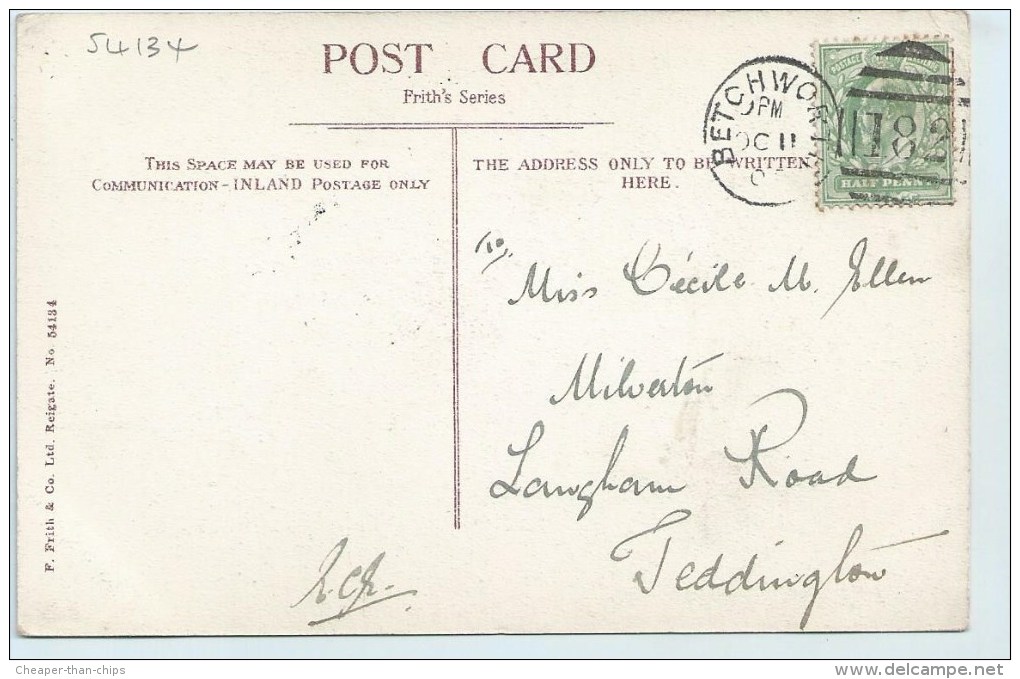 54134
POST CARD
Frith's Series
THIS SPACE MAY BE USED FOR
COMMUNICATION - INLAND POSTAGE ONLY
THE ADDRESS ONLY TO BE WRITTEN
HERE.
BETCHWORTH
PM
OC 11
182
POSTAGE
HALF PENNY
To,
Miss Cécile M. Ellen
Milverton
Langham Road
Teddington
F. Frith & Co. Ltd. Reigate. No. 54134
Cheaper-than-chips
www.delcampe.net